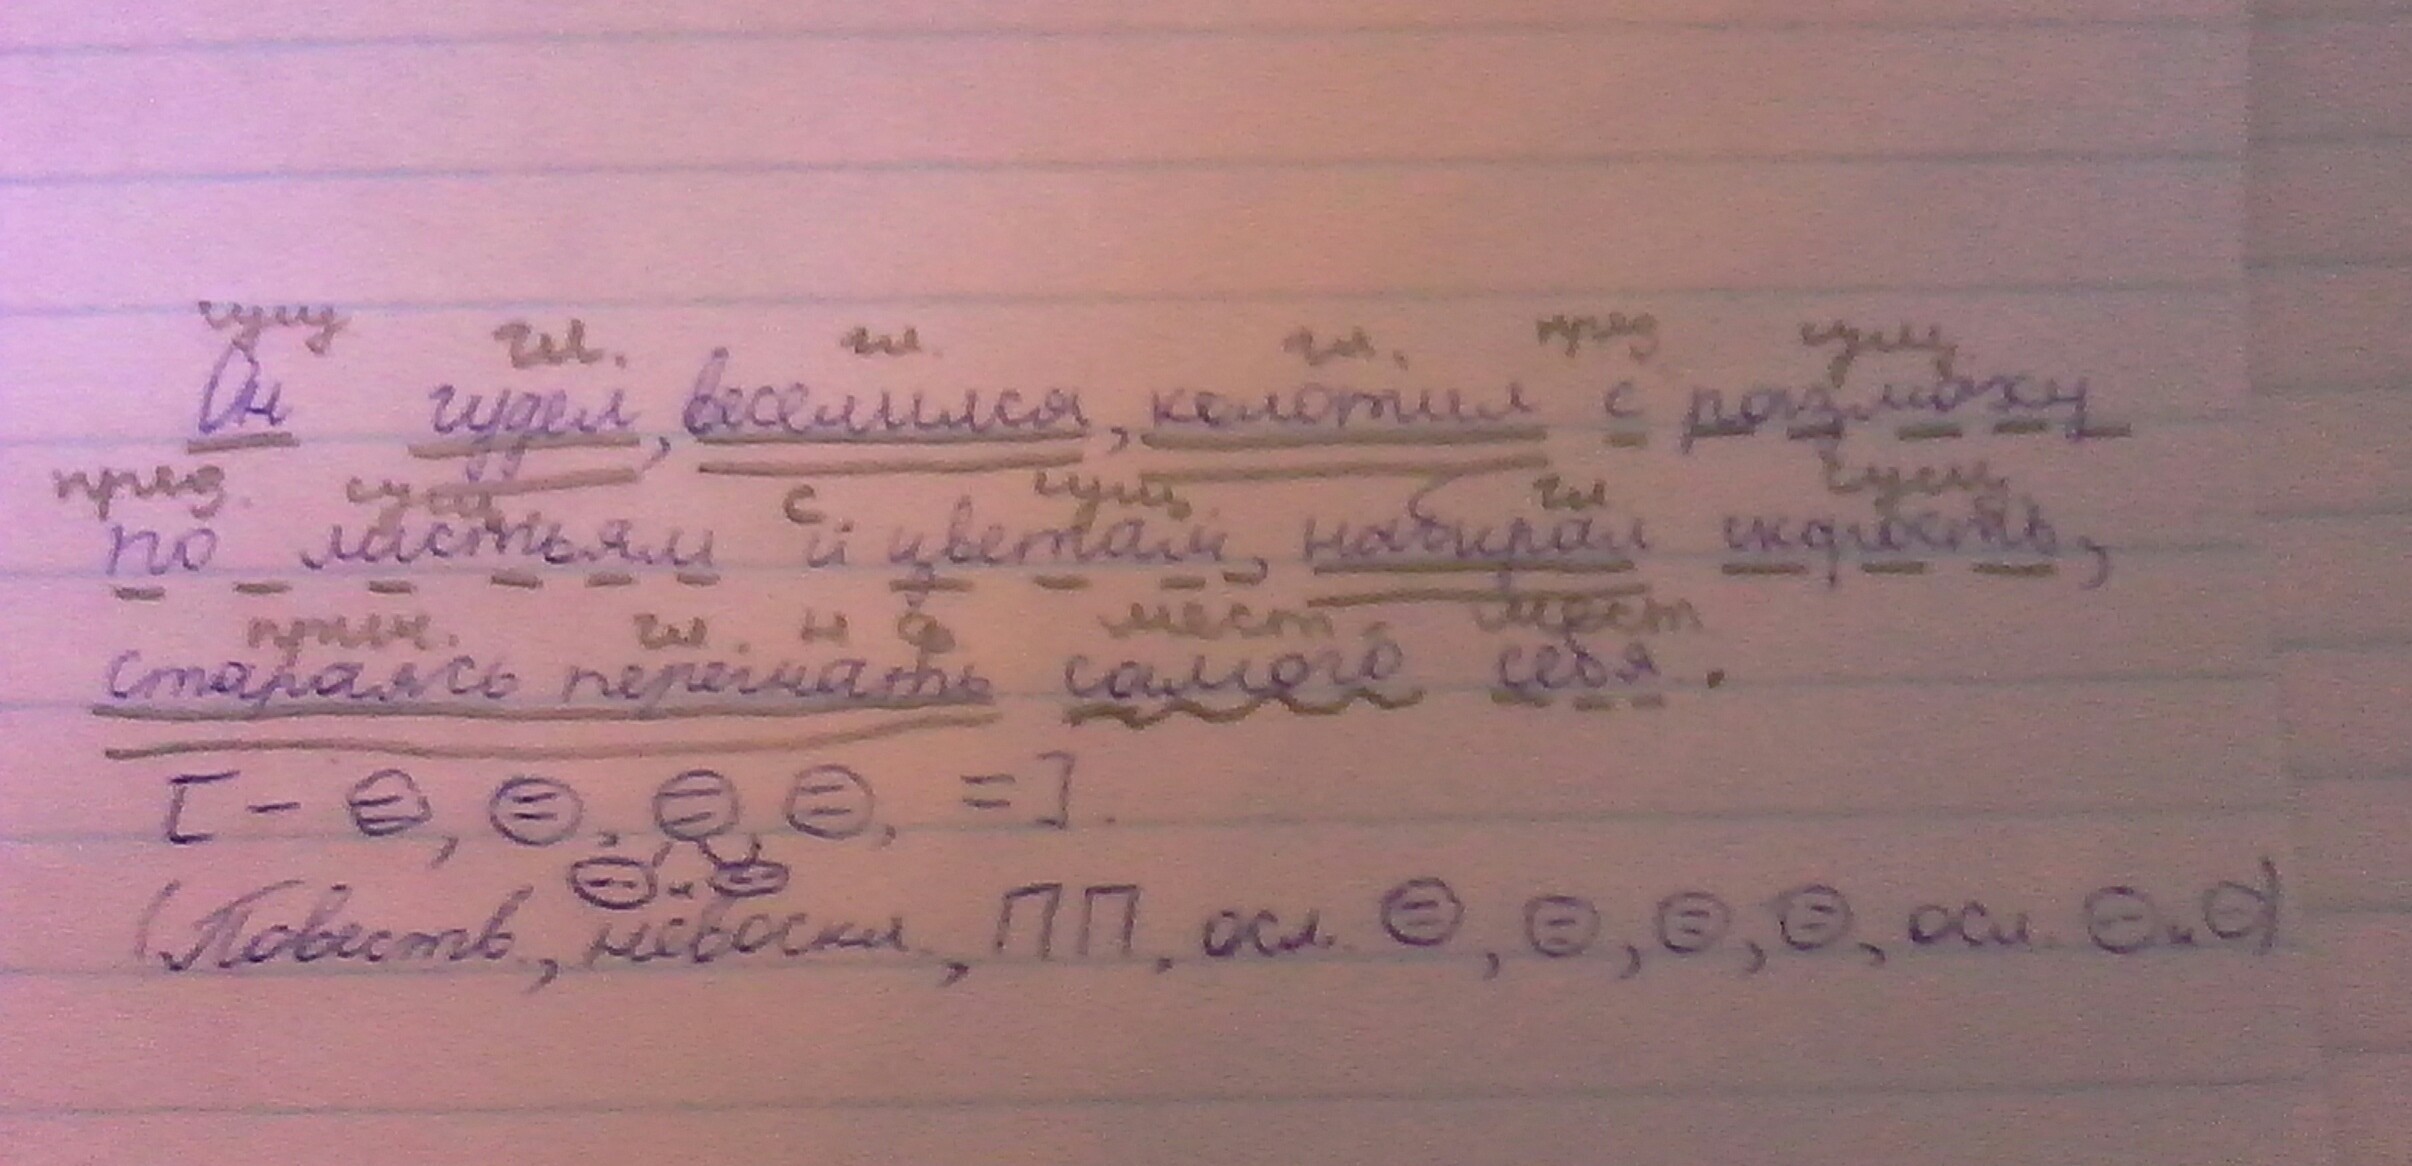 сущ гл. гл. гл. пред сущ
Он гудел, веселился, колотил с размаху
пред. сущ. с сущ. гл сущ.
по листьям и цветам, набирал скорость,
прич. гл. н ф мест. мест
стараясь перегнать самого себя.
[– =, =, =, =, =].
(Повеств., невоскл., ПП, осл. =, =, =, =, осл. – и –)